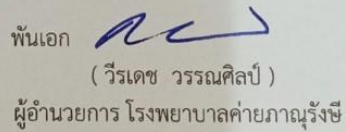 พันเอก
( วีรเดช วรรณศิลป์ )
ผู้อำนวยการ โรงพยาบาลค่ายภาณุรังษี